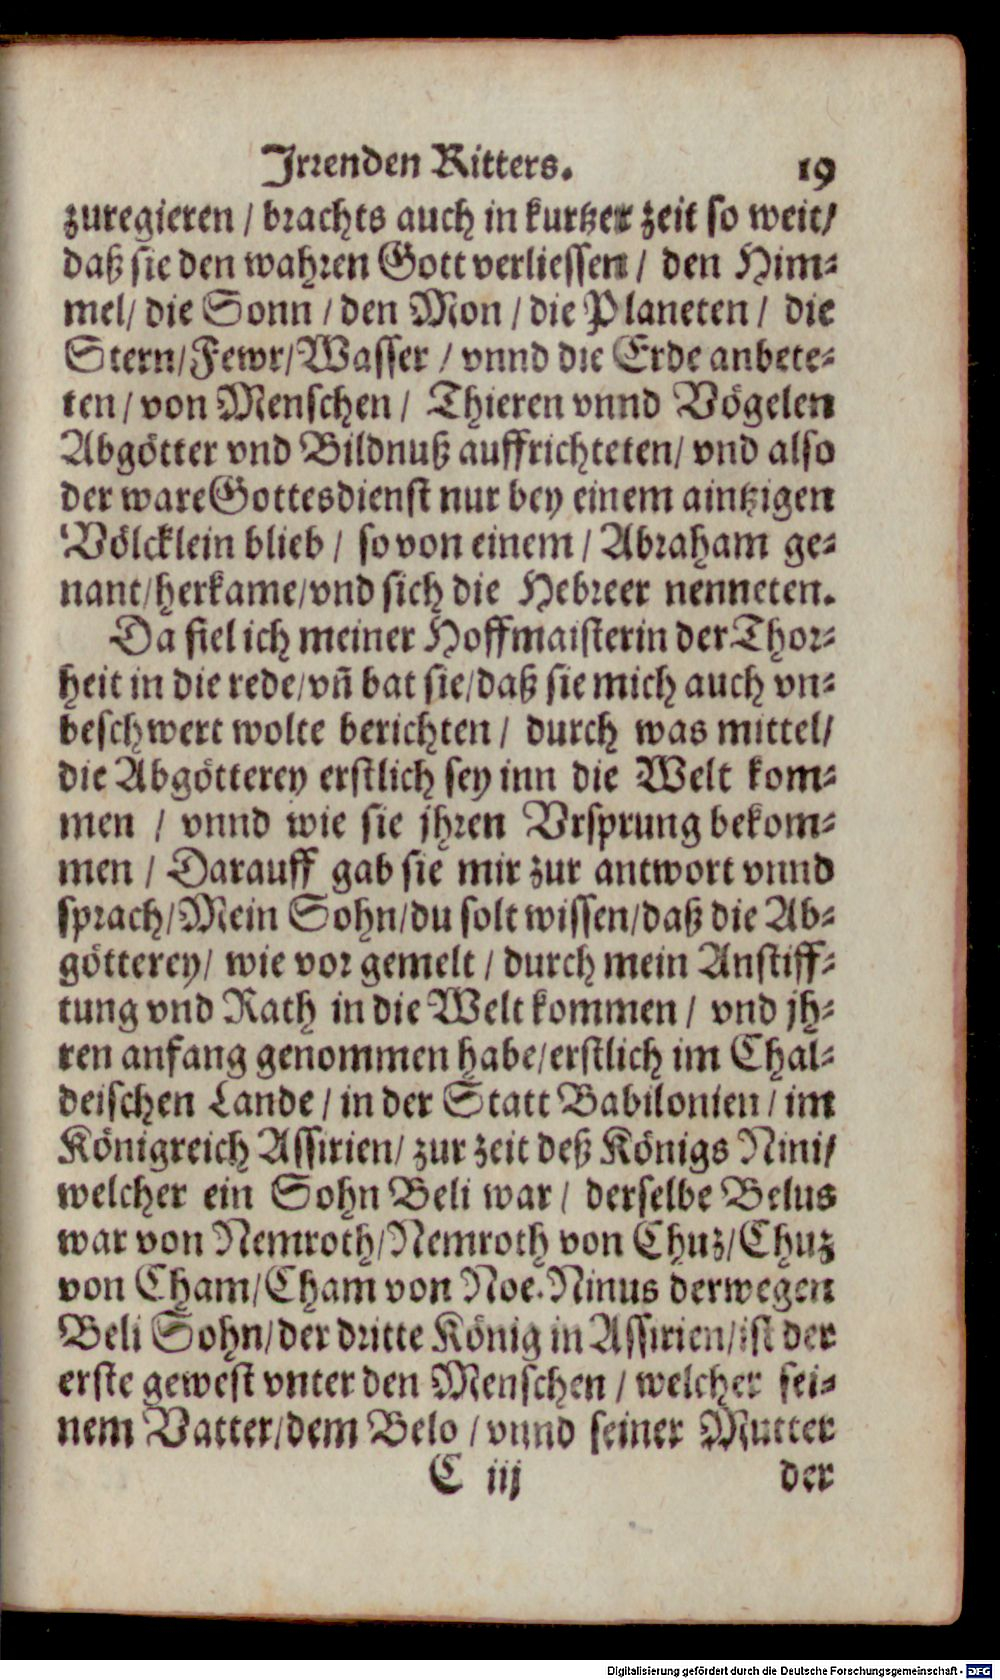 Irrenden Ritters. 19
zuregieren / brachts auch in kurtzer zeit so weit/
daß sie den wahren Gott verliessen / den Him-
mel/ die Sonn / den Mon / die Planeten / die
Stern/Fewr/Wasser / vnnd die Erde anbete-
ten / von Menschen / Thieren vnnd Vögelen
Abgötter vnd Bildnuß auffrichteten/ vnd also
der ware Gottesdienst nur bey einem aintzigen
Völcklein blieb / so von einem / Abraham ge-
nant/herkame/vnd sich die Hebreer nenneten.
Da fiel ich meiner Hoffmaisterin der Thor-
heit in die rede/vñ bat sie/daß sie mich auch vn-
beschwert wolte berichten / durch was mittel/
die Abgötterey erstlich sey inn die Welt kom-
men / vnnd wie sie jhren Vrsprung bekom-
men / Darauff gab sie mir zur antwort vnnd
sprach/Mein Sohn/du solt wissen/daß die Ab-
götterey/ wie vor gemelt / durch mein Anstiff-
tung vnd Rath in die Welt kommen / vnd jh-
ren anfang genommen habe/erstlich im Chal-
deischen Lande / in der Statt Babilonien / im
Königreich Assirien/ zur zeit deß Königs Nini/
welcher ein Sohn Beli war / derselbe Belus
war von Nemroth/Nemroth von Chuz/Chuz
von Cham/Cham von Noe. Ninus derwegen
Beli Sohn/der dritte König in Assirien/ist der
erste gewest vnter den Menschen / welcher sei-
nem Vatter/dem Belo / vnnd seiner Mutter
C iij der
Digitalisierung gefördert durch die Deutsche Forschungsgemeinschaft - DFG